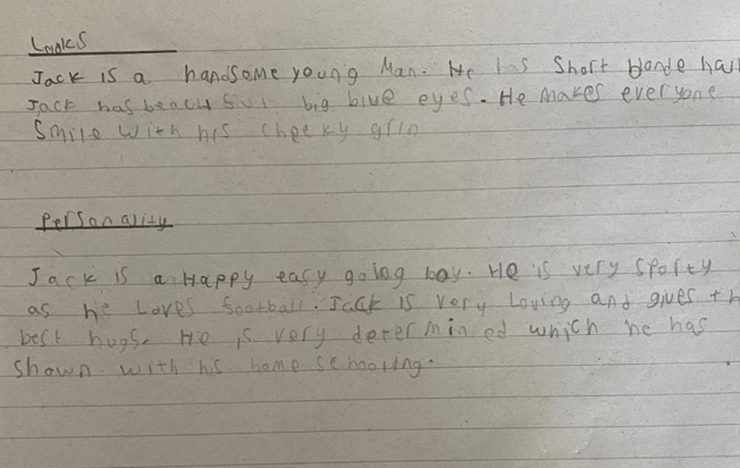 Looks
Jack is a handsome young Man. He has Short blonde hai
Jack has big blue eyes. He makes everyone
Smile with his cheeky grin
Personality
Jack is a Happy easy going boy. He is very sporty
as he Loves football. Jack is very Loving and gives th
best hugs. He is very determined which he has
Shown with his home schooling.